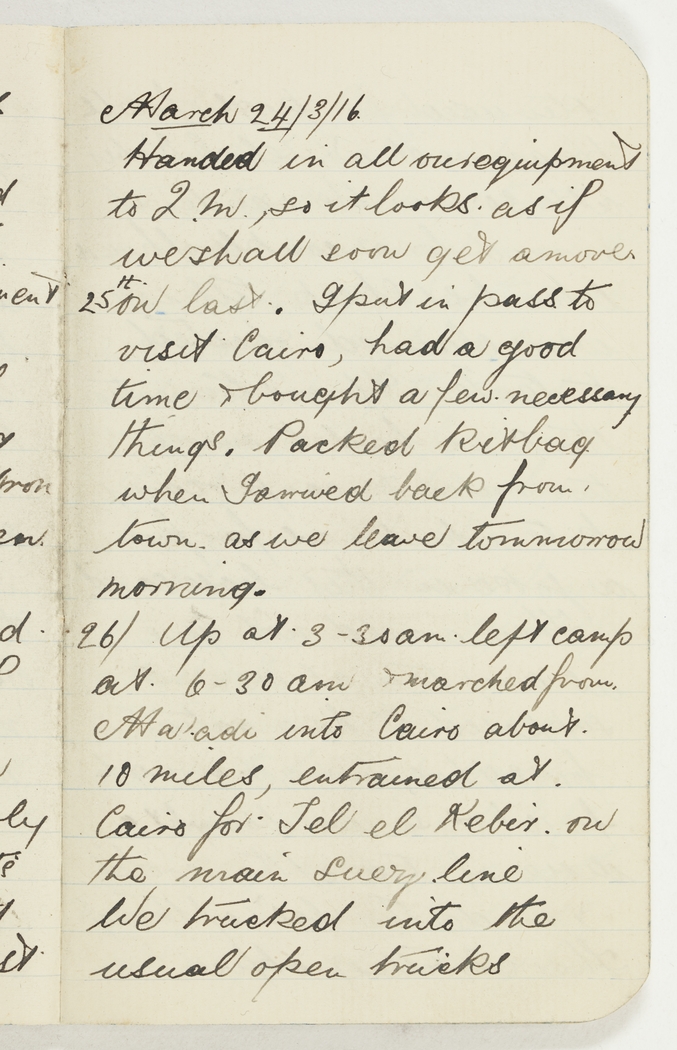 March 24/3/16.
Handed in all our equipment
to Q.M., so it looks as if
we shall soon get a move
25th on last. I put in pass to
visit Cairo, had a good
time & bought a few necessary
things. Packed Kitbag
when I arrived back from
town. as we leave tommorrow
morning.
26/ Up at 3-30 am. left camp
at 6-30 am & marched from
Ma'adi into Cairo about
10 miles, entrained at
Cairo for Tel el Kebir. on
the main Suez line
We trucked into the
usual open trucks